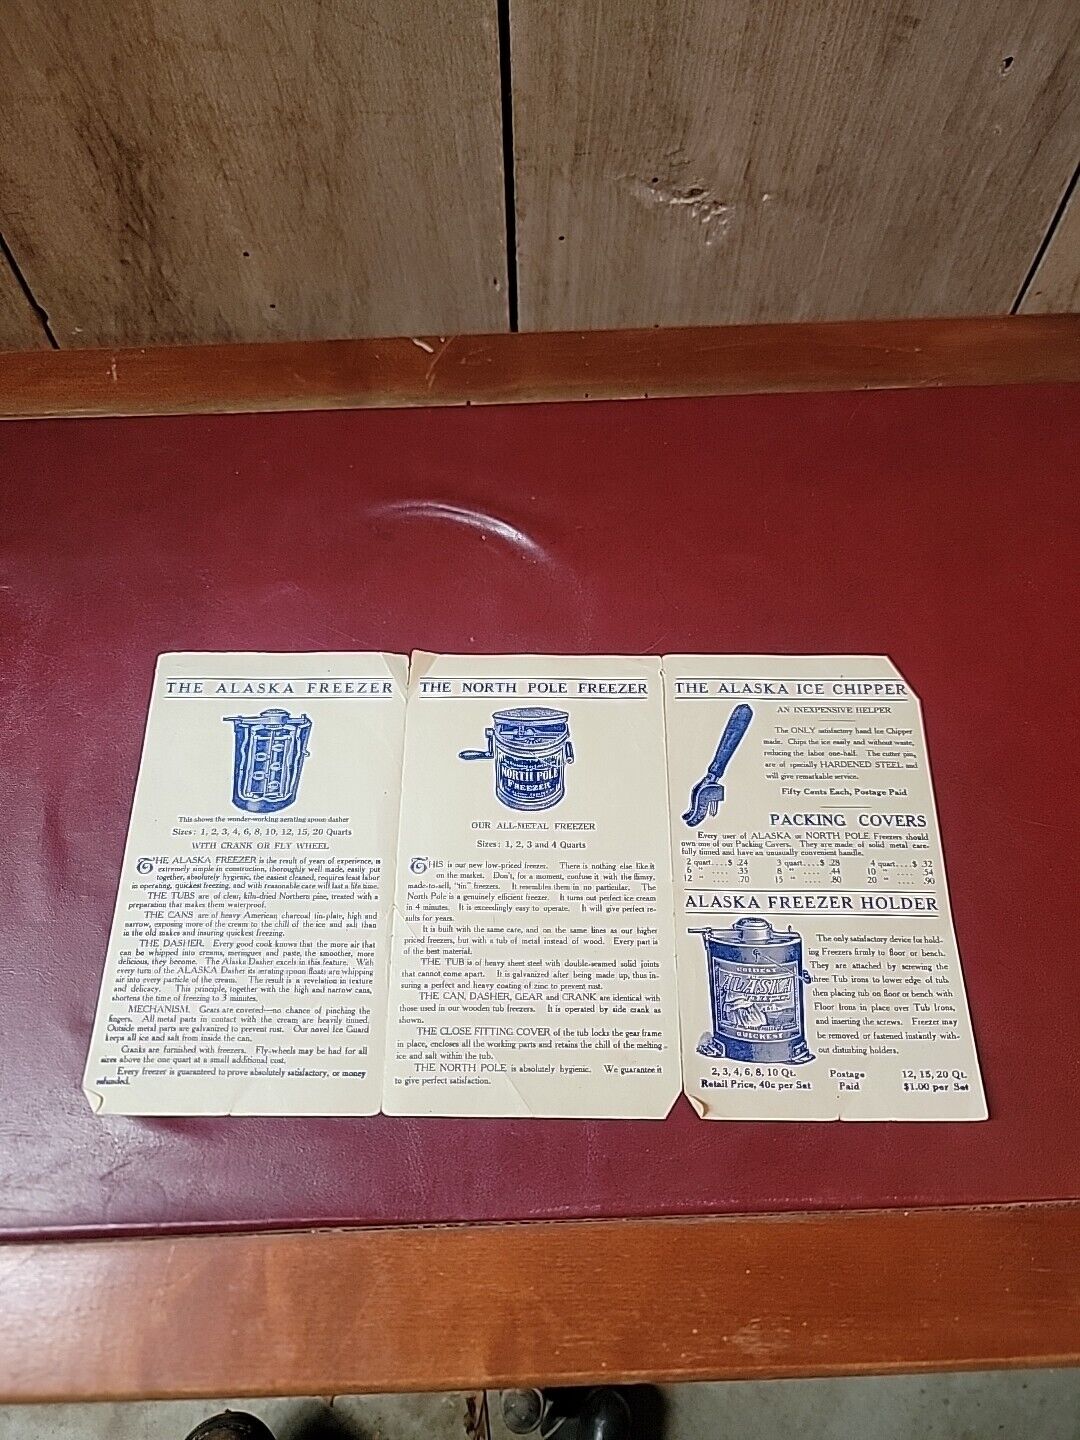 THE ALASKA FREEZER
This shows the wonder-working aerating spoon dasher
Sizes: 1, 2, 3, 4, 6, 8, 10, 12, 15, 20 Quarts
WITH CRANK OR FLY WHEEL
THE ALASKA FREEZER is the result of years of experience, is
extremely simple in construction, thoroughly well made, easily put
together, absolutely hygienic, the easiest cleaned, requires least labor
in operating, quickest freezing, and with reasonable care will last a life time.
THE TUBS are of clear, kiln-dried Northern pine, treated with a
preparation that makes them waterproof.
THE CANS are of heavy American charcoal tin-plate, high and
narrow, exposing more of the cream to the chill of the ice and salt than
in the old makes and insuring quickest freezing.
THE DASHER. Every good cook knows that the more air that
can be whipped into creams, meringues and paste, the smoother, more
delicious, they become. The Alaska Dasher excels in this feature. With
every turn of the ALASKA Dasher its aerating spoon floats are whipping
air into every particle of the cream. The result is a revelation in texture
and delicacy. This principle, together with the high and narrow cans,
shortens the time of freezing to 3 minutes.
MECHANISM. Gears are covered—no chance of pinching the
fingers. All metal parts in contact with the cream are heavily tinned.
Outside metal parts are galvanized to prevent rust. Our novel Ice Guard
keeps all ice and salt from inside the can.
Cranks are furnished with freezers. Fly-wheels may be had for all
sizes above the one quart at a small additional cost.
Every freezer is guaranteed to prove absolutely satisfactory, or money
refunded.
THE NORTH POLE FREEZER
NORTH POLE
FREEZER
OUR ALL-METAL FREEZER
Sizes: 1, 2, 3 and 4 Quarts
THIS is our new low-priced freezer. There is nothing else like it
on the market. Don't, for a moment, confuse it with the flimsy,
made-to-sell, "tin" freezers. It resembles them in no particular. The
North Pole is a genuinely efficient freezer. It turns out perfect ice cream
in 4 minutes. It is exceedingly easy to operate. It will give perfect re-
sults for years.
It is built with the same care, and on the same lines as our higher
priced freezers, but with a tub of metal instead of wood. Every part is
of the best material.
THE TUB is of heavy sheet steel with double-seamed solid joints
that cannot come apart. It is galvanized after being made up, thus in-
suring a perfect and heavy coating of zinc to prevent rust.
THE CAN, DASHER, GEAR and CRANK are identical with
those used in our wooden tub freezers. It is operated by side crank as
shown.
THE CLOSE FITTING COVER of the tub locks the gear frame
in place, encloses all the working parts and retains the chill of the melting
ice and salt within the tub.
THE NORTH POLE is absolutely hygienic. We guarantee it
to give perfect satisfaction.
THE ALASKA ICE CHIPPER
AN INEXPENSIVE HELPER
The ONLY satisfactory hand Ice Chipper
made. Chips the ice easily and without waste,
reducing the labor one-half. The cutter pins,
are of specially HARDENED STEEL and
will give remarkable service.
Fifty Cents Each, Postage Paid
PACKING COVERS
Every user of ALASKA or NORTH POLE Freezers should
own one of our Packing Covers. They are made of solid metal care-
fully tinned and have an unusually convenient handle.
2 quart....$ .24 3 quart....$ .28 4 quart....$ .32
6 " .... .35 8 " .... .44 10 " .... .54
12 " .... .70 15 " .... .80 20 " .... .90
ALASKA FREEZER HOLDER
COLDEST
ALASKA
FREEZER
QUICKEST
The only satisfactory device for hold-
ing Freezers firmly to floor or bench.
They are attached by screwing the
three Tub irons to lower edge of tub.
then placing tub on floor or bench with
Floor Irons in place over Tub Irons,
and inserting the screws. Freezer may
be removed or fastened instantly with-
out disturbing holders.
2, 3, 4, 6, 8, 10 Qt. Postage 12, 15, 20 Qt.
Retail Price, 40c per Set Paid $1.00 per Set